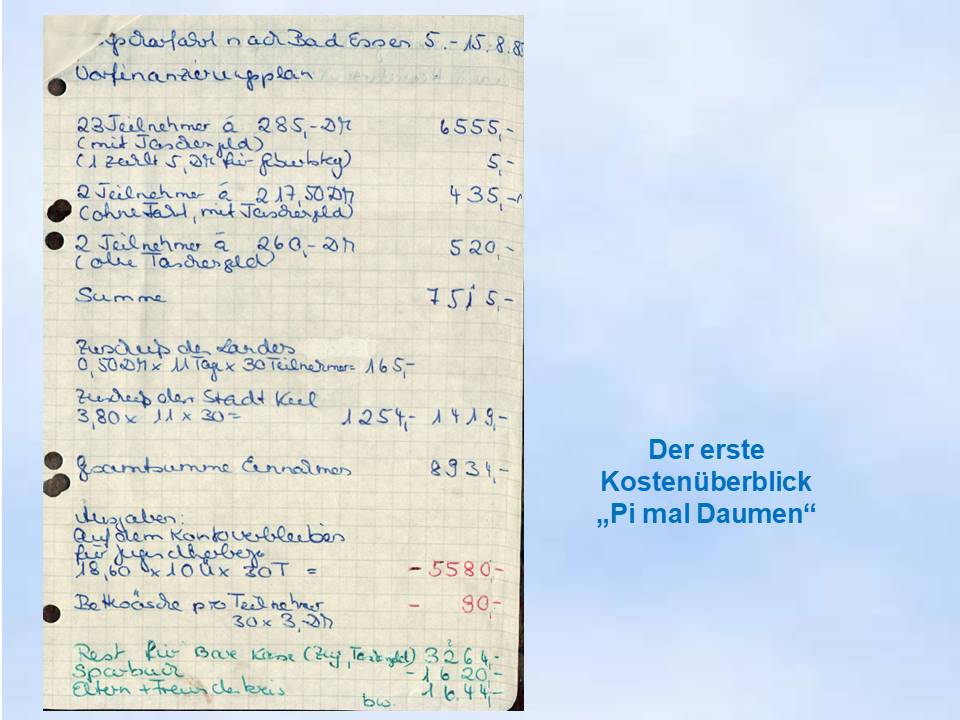 nach Bad Essen 5.-15.8.
Vorfinanzierungsplan
23 Teilnehmer á 285,-DM 6555,-
(mit Taschengeld)
(1 zahlt 5,DM für 5,-
2 Teilnehmer á 217,50DM 435,-
(ohne Fahrt, mit Taschengeld)
2 Teilnehmer á 260,-DM 520,-
(ohne Taschengeld)
Summe 7515,-
Zuschuß des Landes
0,50DM x 11 Tage x 30 Teilnehmer = 165,-
Zuschuß der Stadt Kiel
3,80 x 11 x 30 = 1254,- 1419,-
Gesamtsumme Einnahmen 8934,-
Ausgaben:
auf dem Konto verbleiben
für Jugendherberge
18,60 x 10Ü x 30T = -5580,-
Bettwäsche pro Teilnehmer - 90,-
30 x 3,-DM
Rest für Bare Kasse (Zug, 3264,-
Sparbuch -1620,-
Eltern + Freundeskreis 1644,-
bw.
Der erste
Kostenüberblick
„Pi mal Daumen“